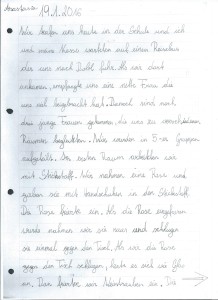 Anastasia 19.1.2016
Wir trafen uns heute in der Schule und ich
und meine Klasse warteten auf einen Reisebus
der uns nach führte. Als wir dort
ankamen, empfangte uns eine nette Frau die
uns viel beigebracht hat. Danach sind noch
drei junge Frauen gekommen, die uns zu verschiedenen
Räumen begleiteten. Wir wurden in 5-er Gruppen
aufgeteilt. Im ersten Raum arbeiteten wir
mit Stickstoff. Wir nahmen eine Rose und
gaben sie mit Handschuhen in den Stickstoff.
Die Rose fror ein. Als die Rose eingefroren
wurde nahmen wir sie raus und schlugen
sie einmal gegen den Tisch. Als wir die Rose
gegen den Tisch schlugen, hörte es sich wie Glas
an. Dann wir Weintrauben ein. Die